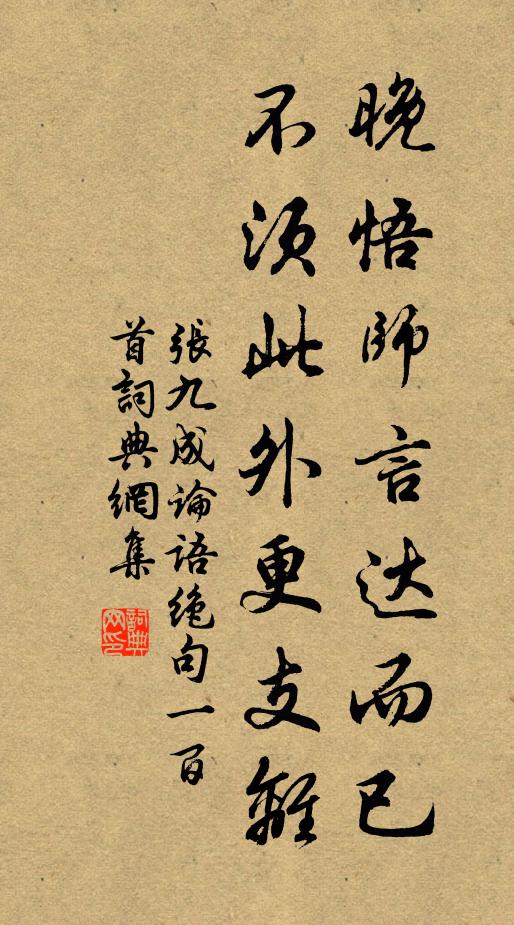 晚悟師言达而已
不须此外更支離
張九成論語绝句一百
首詞典網集
詞典网印